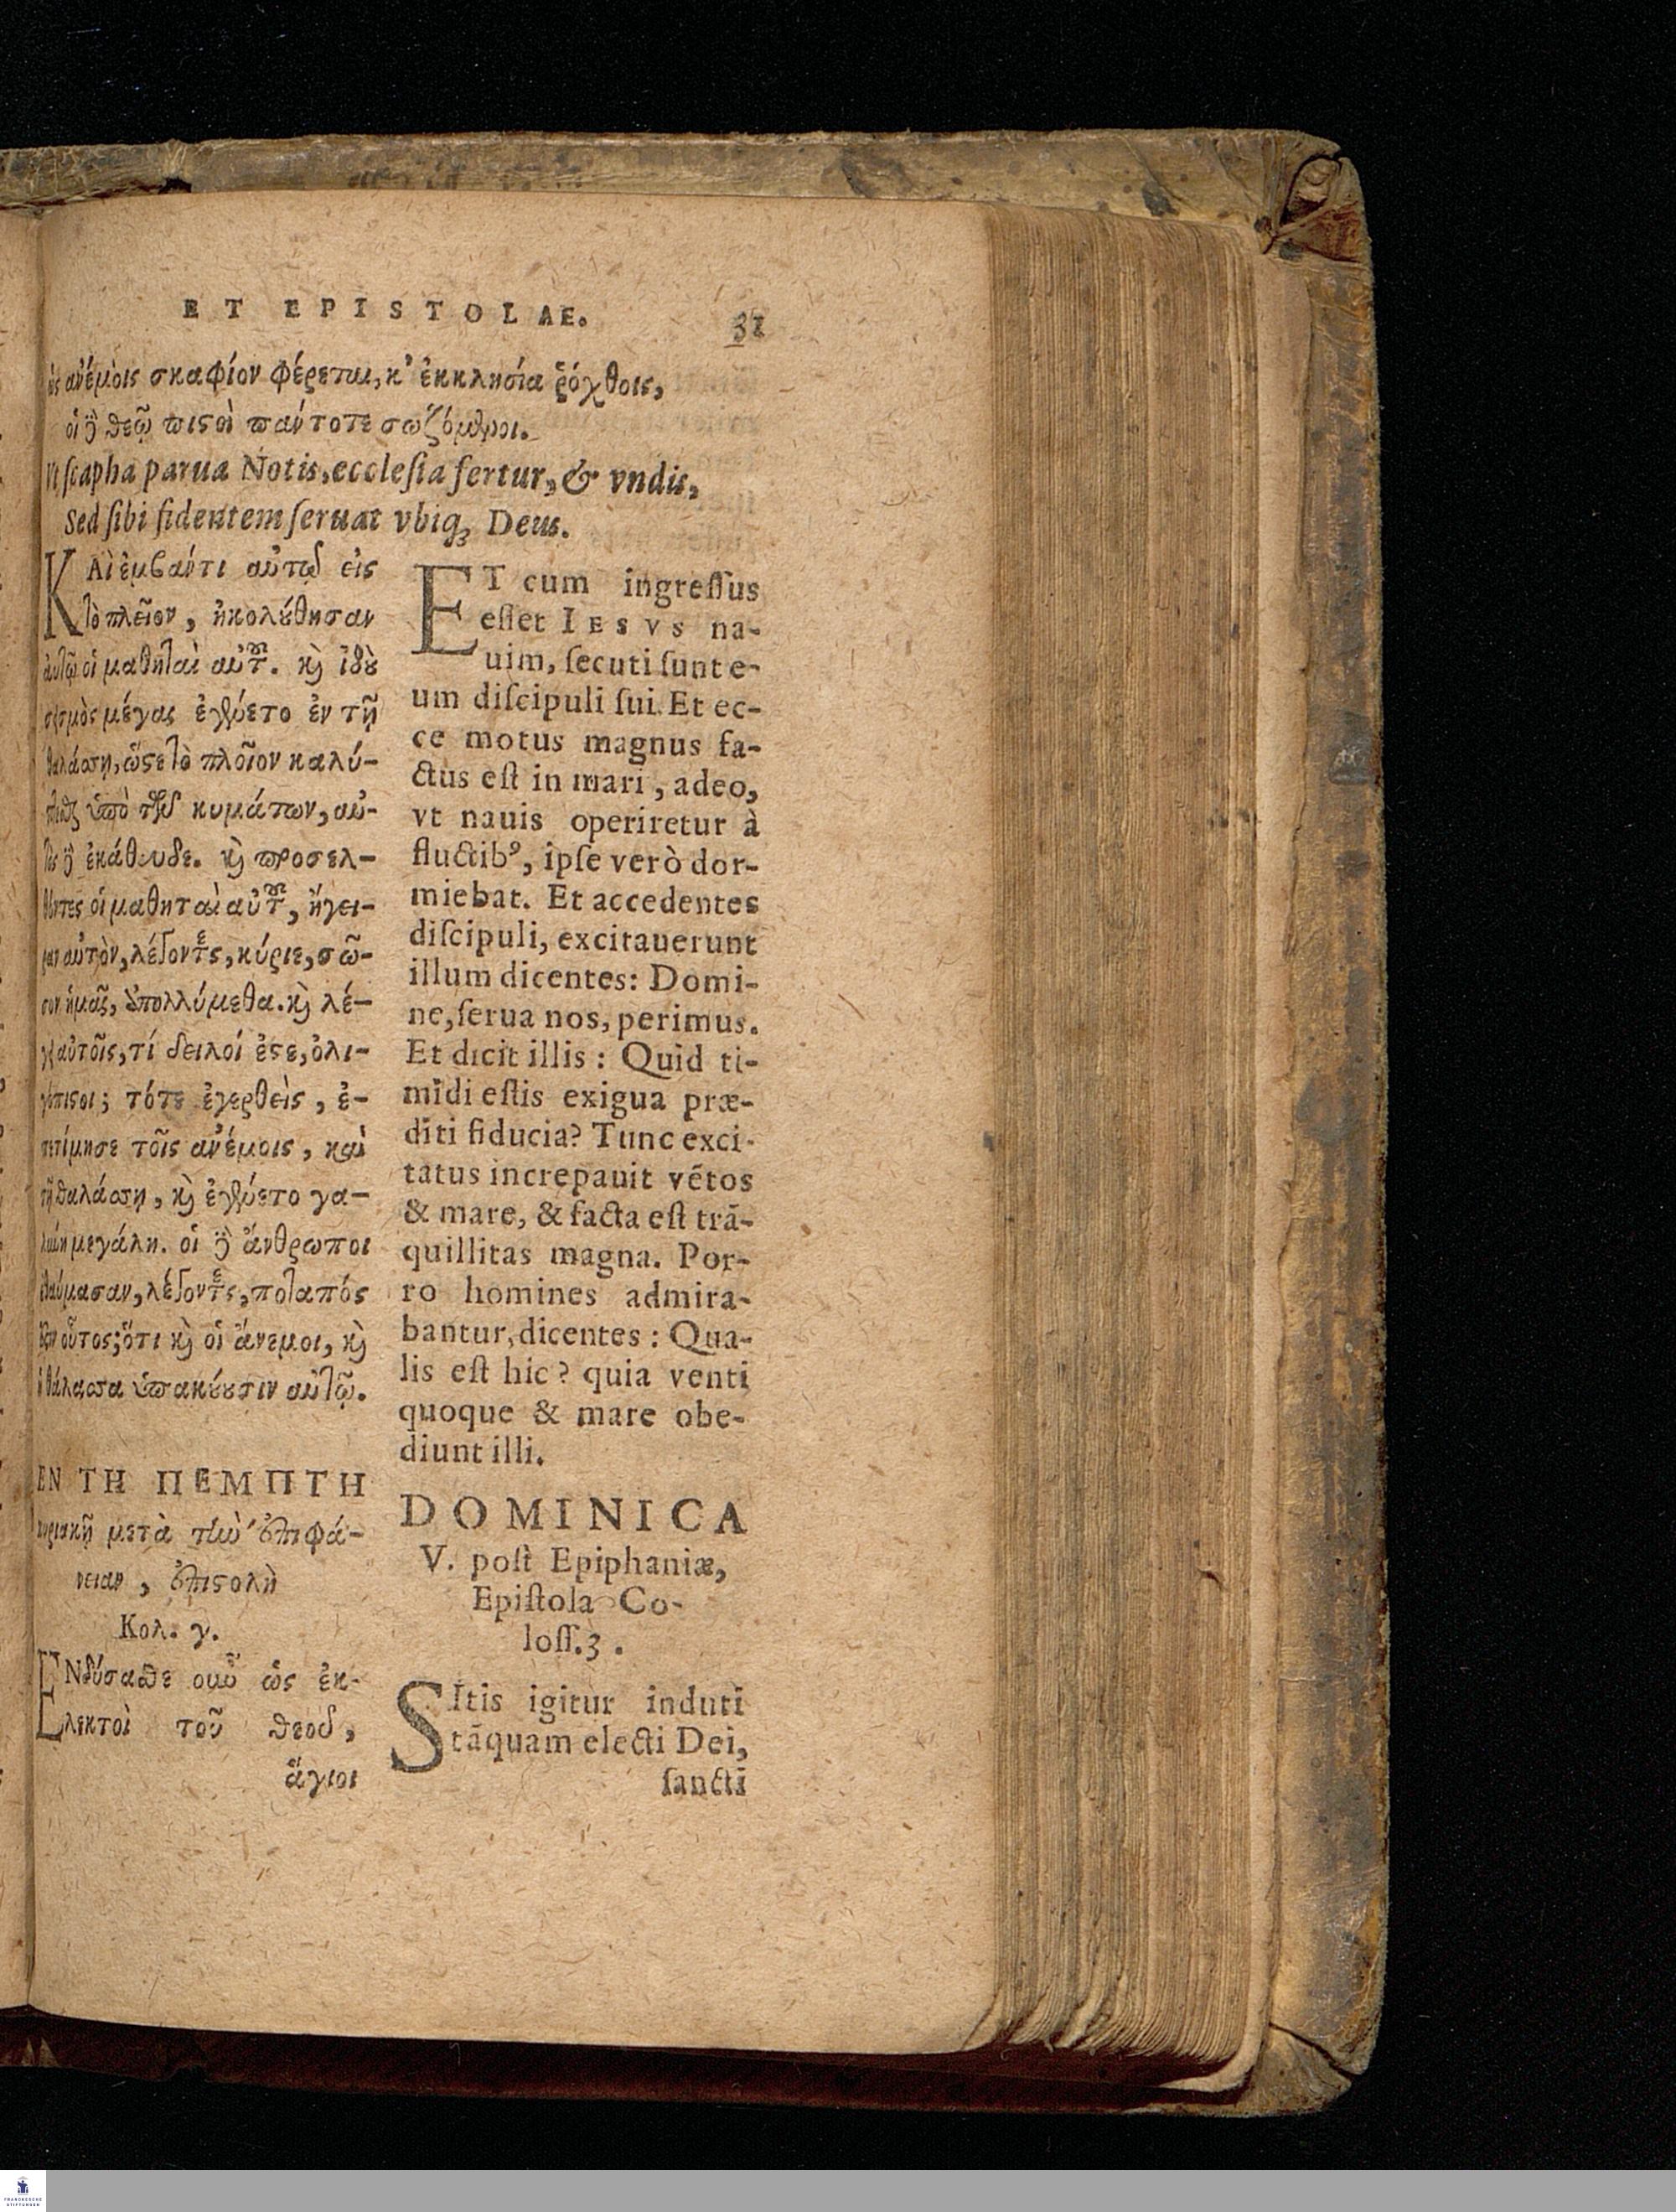 ET EPISTOLAE. 31
ὡς ἀνέμοις σκαφίον φέρεται, κ' ἐκκλησία ῥόχθοις,
οἱ ἢ θεῷ πιςοὶ πάντοτε σωζόμθμοι.
Vt ſcapha parua Notis, eccleſia fertur, & vndis,
Sed ſibi fidentem ſeruat vbiq; Deus.
ΚΑὶ ἐμβάντι αὐτῷ εἰς
τὸ πλεῖον, ἠκολύθησαν
αὐτῷ οἱ μαθηταὶ αὐτοῦ. κὶ ἰδὺ
σεισμὸς μέγας ἐγένετο ἐν τῇ
θαλάσσῃ, ὥςε τὸ πλοῖον καλύ-
πτεσθαι ὑπὸ τῶν κυμάτων, αὐ-
τὸς ἢ ἐκάθευδε. κὶ προσελ-
θόντες οἱ μαθηταὶ αὐτοῦ, ἤγει-
ραν αὐτὸν, λέγοντες, κύριε, σῶ-
σον ἡμᾶς, ἀπολλύμεθα. κὶ λέ-
γει αὐτοῖς, τί δειλοί ἐςε, ὀλι-
γόπιςοι; τότε ἐγερθεὶς, ἐ-
πετίμησε τοῖς ἀνέμοις, καὶ
τῇ θαλάσσῃ, κὶ ἐγένετο γα-
λήνη μεγάλη. οἱ ἢ ἄνθρωποι
ἐθαύμασαν, λέγοντες, ποταπός
ἐςιν οὗτος; ὅτι κὶ οἱ ἄνεμοι, κὶ
ἡ θάλασσα ὑπακύυσιν αὐτῷ.
ΕΝ ΤΗ ΠΕΜΠΤΗ
κυριακῇ μετὰ τὴν ἐπιφά-
νειαν, ἐπιςολὴ
Κολ. γ.
ΕΝδύσασθε οιῶ ὡς ἐκ-
λεκτοὶ τοῦ θεοῦ,
ἅγιοι
ET cum ingreſſus
eſſet IESVS na-
uim, ſecuti ſunt e-
um diſcipuli ſui. Et ec-
ce motus magnus fa-
ctus eſt in mari, adeo,
vt nauis operiretur à
fluctib⁹, ipſe verò dor-
miebat. Et accedentes
diſcipuli, excitauerunt
illum dicentes: Domi-
ne, ſerua nos, perimus.
Et dicit illis: Quid ti-
midi eſtis exigua præ-
diti fiducia? Tunc exci-
tatus increpauit vẽtos
& mare, & facta eſt trã-
quillitas magna. Por-
ro homines admira-
bantur, dicentes: Qua-
lis eſt hic? quia venti
quoque & mare obe-
diunt illi.
DOMINICA
V. poſt Epiphaniæ,
Epiſtola Co-
loſſ. 3.
SItis igitur induti
tãquam electi Dei,
ſancti
FRANCKESCHE
STIFTUNGEN